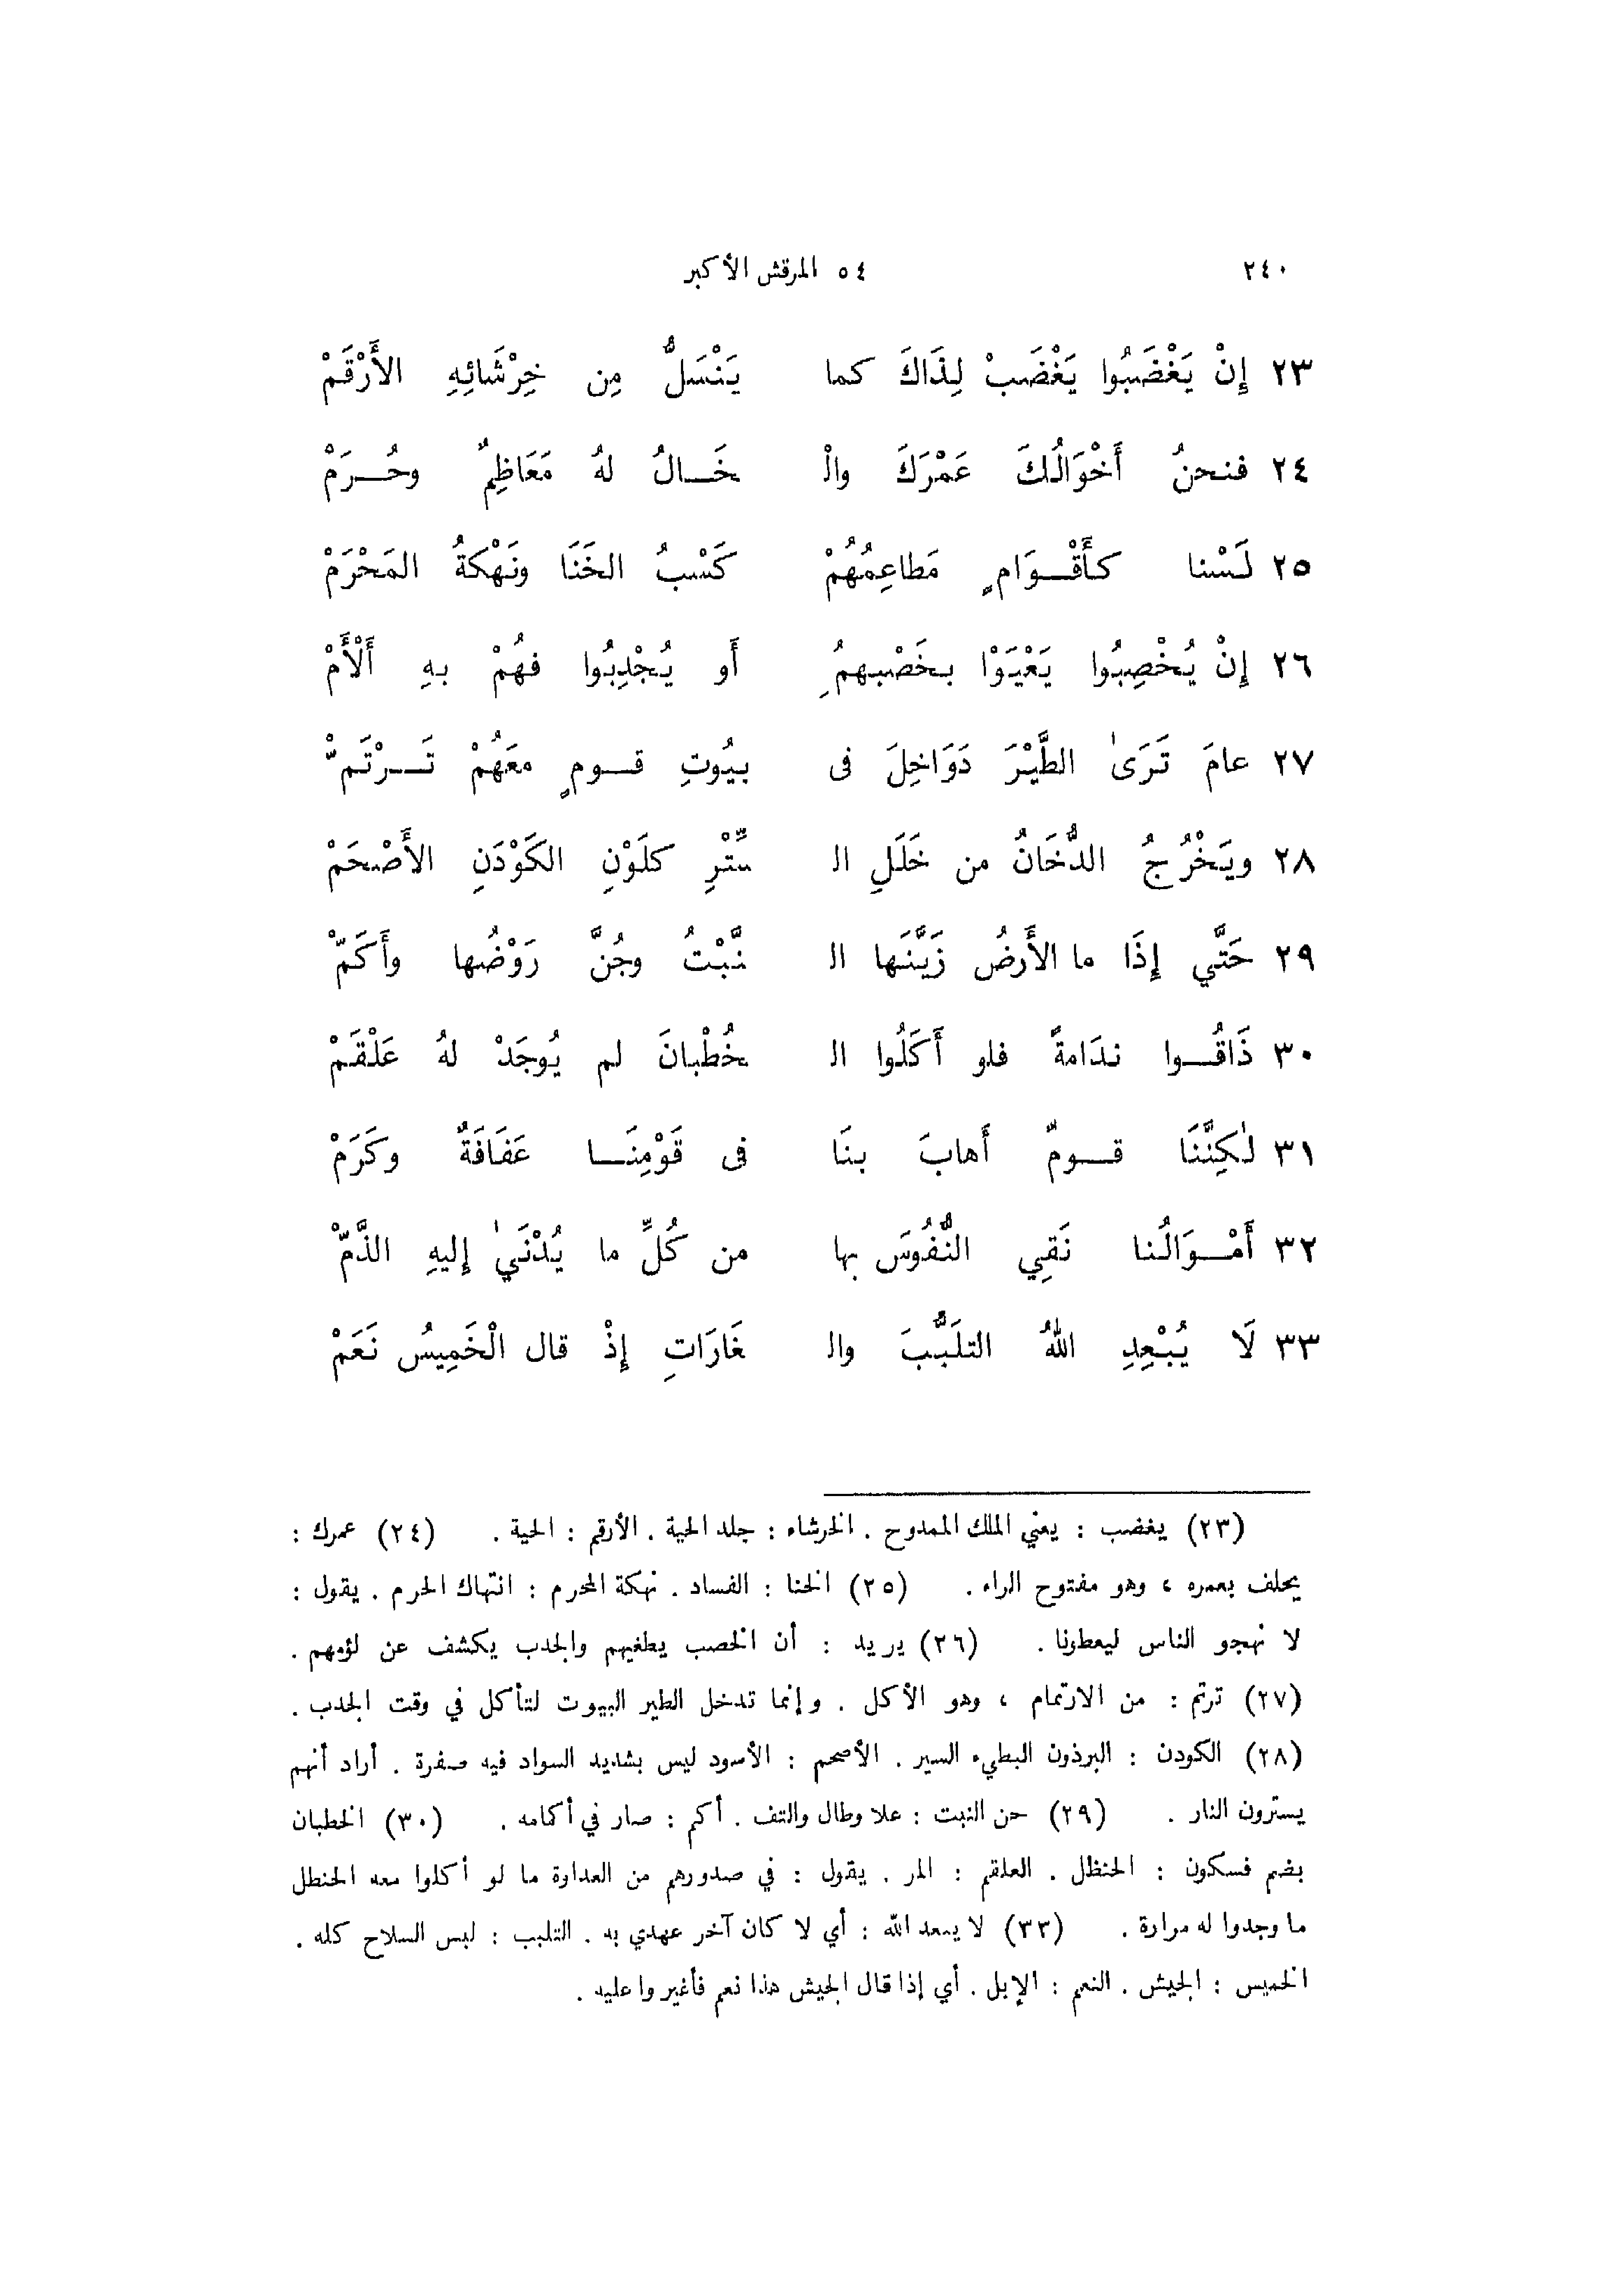 ٢٤٠ ٥٤ المرقش الأكبر
٢٣ إِنْ يَغْضَبُوا يَغْضَبْ لِذَاكَ كما يَنْسَلُّ مِن خِرْشَائِهِ الأَرْقَمْ
٢٤ فنحنُ أَخْوَالُكَ عَمْرَكَ والْ خَالُ لهُ مَعَاظِمٌ وحُرَمْ
٢٥ لَسْنا كأَقْوَامٍ مَطاعِمُهُمْ كَسْبُ الخَنَا ونَهْكةُ المَحْرَمْ
٢٦ إِنْ يُخْصِبُوا يَعْيَوْا بخَصْبِهِمُ أَو يُجْدِبُوا فهُمْ بهِ أَلْأَمْ
٢٧ عامَ تَرَىٰ الطَّيْرَ دَوَاخِلَ فى بيُوتِ قومٍ معَهُمْ تَرْتَمّْ
٢٨ ويَخْرُجُ الدُّخَانُ من خَلَلِ ال سِّتْرِ كلَوْنِ الكَوْدَنِ الأَصْحَمْ
٢٩ حَتَّي إِذَا ما الأَرضُ زَيَّنَها ال نَّبْتُ وجُنَّ رَوْضُها وأَكَمّْ
٣٠ ذَاقُوا ندَامةً فلو أَكَلُوا ال خُطْبانَ لم يُوجَدْ لهُ عَلْقَمْ
٣١ لٰكِنَّنَا قومٌ أَهابَ بنَا فى قَوْمِنَا عَفَافَةٌ وكَرَمْ
٣٢ أَمْوَالُنا نَقِي النُّفُوسَ بها من كُلِّ ما يُدْنَيٰ إِليهِ الذَّمّْ
٣٣ لَا يُبْعِدِ اللهُ التلَبُّبَ وال غَارَاتِ إِذْ قال الْخَمِيسُ نَعَمْ
(٢٣) يغضب : يعني الملك الممدوح . الخرشاء : جلد الحية . الأرقم : الحية . (٢٤) عمرك :
يحلف بعمره ، وهو مفتوح الراء . (٢٥) الخنا : الفساد . نهكة المحرم : انتهاك الحرم . يقول :
لا نهجو الناس ليعطونا . (٢٦) يريد : أن الخصب يطغيهم والجدب يكشف عن لؤمهم .
(٢٧) ترتم : من الارتمام ، وهو الأكل . وإنما تدخل الطير البيوت لتأكل في وقت الجدب .
(٢٨) الكودن : البرذون البطيء السير . الأصحم : الأسود ليس بشديد السواد فيه صفرة . أراد أنهم
يسترون النار . (٢٩) جن النبت : علا وطال والتف . أكم : صار في أكمامه . (٣٠) الخطبان
بضم فسكون : الحنظل . العلقم : المر . يقول : في صدورهم من العداوة ما لو أكلوا معه الحنطل
ما وجدوا له مرارة . (٣٣) لا يبعد الله : أي لا كان آخر عهدي به . التلبب : لبس السلاح كله .
الخميس : الجيش . النعم : الإبل . أي إذا قال الجيش هذا نعم فأغيروا عليه .